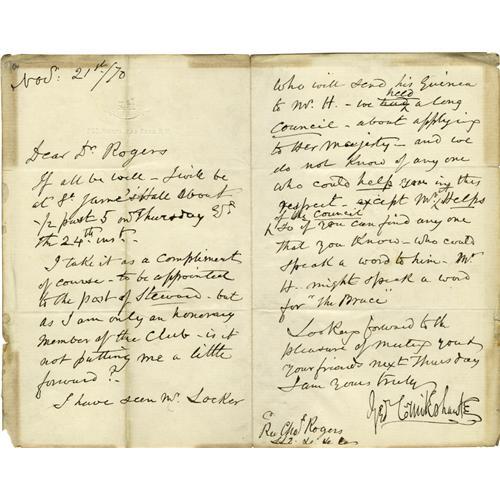 Novr. 21st/70
Dear Dr. Rogers
If all be well - I will be
at St. James's Hall about
1/2 past 5 on Thursday
the 24th inst.
I take it as a compliment
of course - to be appointed
to the post of Steward - but
as I am only an honorary
member of the Club - is it
not putting me a little
forward?-
I have seen Mr. Locker
who will send his Guinea
to Mr. H. - we need a long
Council - about applying
to Her Majesty - and we
do not know of any one
who could help you in this
respect - except Mr. Helps
of the Council
So if you can find any one
that you know - who could
speak a word to him - Mr.
H. might speak a word
for "The Bruce"
Looking forward to the
pleasure of meeting you &
your friends next Thursday
I am yours truly
Geo Cruikshank
Rev Chas. Rogers